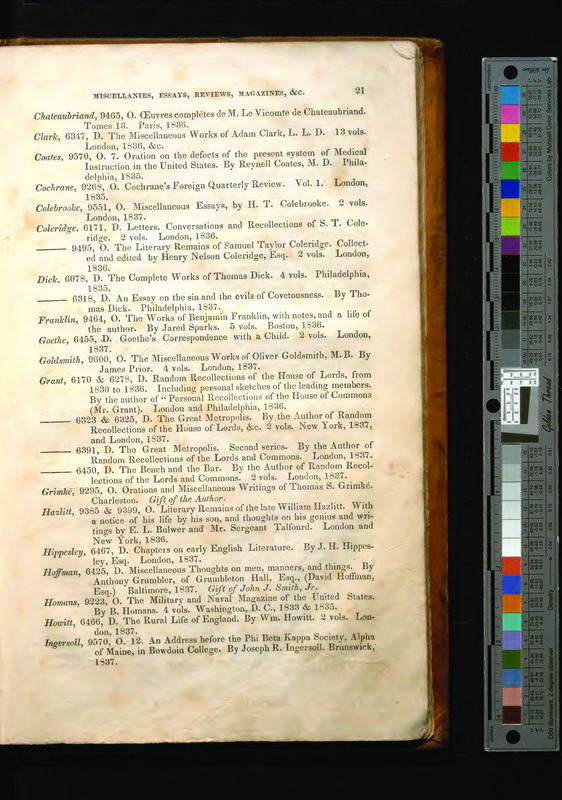 MISCELLANIES, ESSAYS, REVIEWS, MAGAZINES, &c. 21
Chateaubriand, 9465, O. Œuvres complètes de M. Le Vicomte de Chateaubriand.
Tomes 13. Paris, 1836.
Clark, 6347, D. The Miscellaneous Works of Adam Clark, L. L. D. 13 vols.
London, 1836, &c.
Coates, 9570, O. 7. Oration on the defects of the present system of Medical
Instruction in the United States. By Reynell Coates, M. D. Phila-
delphia, 1835.
Cochrane, 9268, O. Cochrane's Foreign Quarterly Review. Vol. 1. London,
1835.
Colebrooke, 9551, O. Miscellaneous Essays, by H. T. Colebrooke. 2 vols.
London, 1837.
Coleridge, 6171, D. Letters. Conversations and Recollections of S. T. Cole-
ridge. 2 vols. London, 1836.
——— 9495, O. The Literary Remains of Samuel Taylor Coleridge. Collect-
ed and edited by Henry Nelson Coleridge, Esq. 2 vols. London,
1836.
Dick, 6078, D. The Complete Works of Thomas Dick. 4 vols. Philadelphia,
1835.
——— 6318, D. An Essay on the sin and the evils of Covetousness. By Tho-
mas Dick. Philadelphia, 1837.
Franklin, 9464, O. The Works of Benjamin Franklin, with notes, and a life of
the author. By Jared Sparks. 5 vols. Boston, 1836.
Goethe, 6455, D. Goethe's Correspondence with a Child. 2 vols. London,
1837.
Goldsmith, 9600, O. The Miscellaneous Works of Oliver Goldsmith, M. B. By
James Prior. 4 vols. London, 1837.
Grant, 6170 & 6278, D. Random Recollections of the House of Lords, from
1830 to 1836. Including personal sketches of the leading members.
By the author of "Personal Recollections of the House of Commons
(Mr. Grant). London and Philadelphia, 1836.
——— 6323 & 6325, D. The Great Metropolis. By the Author of Random
Recollections of the House of Lords, &c. 2 vols. New York, 1837,
and London, 1837.
——— 6391, D. The Great Metropolis. Second series. By the Author of
Random Recollections of the Lords and Commons. London, 1837.
——— 6450, D. The Bench and the Bar. By the Author of Random Recol-
lections of the Lords and Commons. 2 vols. London, 1837.
Grimké, 9295, O. Orations and Miscellaneous Writings of Thomas S. Grimké.
Charleston. Gift of the Author.
Hazlitt, 9385 & 9399, O. Literary Remains of the late William Hazlitt. With
a notice of his life by his son, and thoughts on his genius and wri-
tings by E. L. Bulwer and Mr. Sergeant Talfourd. London and
New York, 1836.
Hippesley, 6467, D. Chapters on early English Literature. By J. H. Hippes-
ley, Esq. London, 1837.
Hoffman, 6425, D. Miscellaneous Thoughts on men, manners, and things. By
Anthony Grumbler, of Grumbleton Hall, Esq., (David Hoffman,
Esq.) Baltimore, 1837. Gift of John J. Smith, Jr.
Homans, 9223, O. The Military and Naval Magazine of the United States.
By B. Homans. 4 vols. Washington, D. C., 1833 & 1835.
Howitt, 6466, D. The Rural Life of England. By Wm. Howitt. 2 vols. Lon-
don, 1837.
Ingersoll, 9570, O. 12. An Address before the Phi Beta Kappa Society, Alpha
of Maine, in Bowdoin College. By Joseph R. Ingersoll. Brunswick,
1837.
Golden Thread
Colors by Munsell Color Services Lab
Density
D50 Illuminant, 2 degree observer